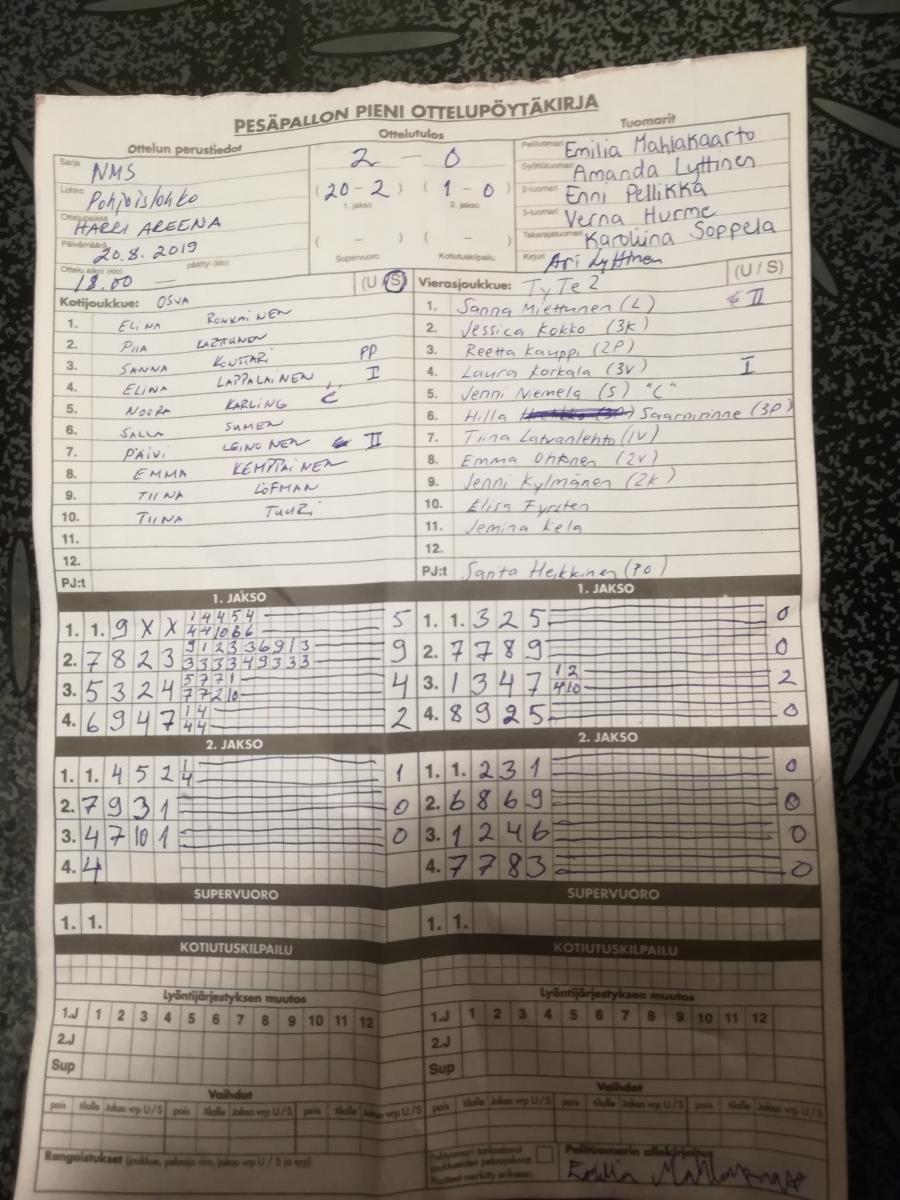 PESÄPALLON PIENI OTTELUPÖYTÄKIRJA
Ottelun perustiedot
Sarja NMS
Lohko Pohjoislohko
Ottelupaikka HARRI AREENA
Päivämäärä 20.8.2019
Ottelu alkoi (klo) 18.00 päättyi (klo) —
Ottelutulos
2 - 0
(20-2) (1-0)
1. jakso 2. jakso
( - ) ( - )
Supervuoro Kotiutuskilpailu
Tuomarit
Pelituomari Emilia Mahlakaarto
Syöttötuomari Amanda Lyttinen
2-tuomari Enni Pellikka
3-tuomari Verna Hurme
Takarajatuomari Karoliina Soppela
Kirjuri Ari Lyttinen
Kotijoukkue: OSVA (U/S)
1. ELINA RONKAINEN
2. PIIA KARTTUNEN
3. SANNA KONSTARI PP
4. ELINA LAPPALAINEN I
5. NOORA KARLING C
6. SALLA SUMEN
7. PÄIVI LEINONEN II
8. EMMA KEMPPAINEN
9. TIINA LÖFMAN
10. TIINA TUURI
11.
12.
PJ:t
Vierasjoukkue: TyTe 2 (U/S)
1. Sanna Miettunen (L) II
2. Jessica Kokko (3K)
3. Reetta Kauppi (2P)
4. Laura Korkala (3V) I
5. Jenni Niemelä (S) "C"
6. Hilla Saarnirinne (3P)
7. Tiina Latvanlehto (1V)
8. Emma Ohtonen (2V)
9. Jenni Kylmänen (2K)
10. Elisa Fyrsten
11. Jemina Kela
12.
PJ:t Sanita Heikkinen (PO)
1. JAKSO
1. 1. 9 X X 1 4 4 5 4 5
4 4 10 6 6
2. 7 8 2 3 9 1 2 3 3 6 9 1 3 9
3 3 3 3 4 9 3 3 3
3. 5 3 2 4 5 7 7 1 4
7 7 2 10
4. 6 9 4 7 1 4 2
4 4
1. JAKSO
1. 1. 3 2 5 0
2. 7 7 8 9 0
3. 1 3 4 7 1 2 2
4 10
4. 8 9 2 5 0
2. JAKSO
1. 1. 4 5 2 1 1
4
2. 7 9 3 1 0
3. 4 7 10 1 0
4. 4
2. JAKSO
1. 1. 2 3 1 0
2. 6 8 6 9 0
3. 1 2 4 6 0
4. 7 7 8 3 0
SUPERVUORO SUPERVUORO
1. 1. 1. 1.
KOTIUTUSKILPAILU KOTIUTUSKILPAILU
Lyöntijärjestyksen muutos Lyöntijärjestyksen muutos
1.J 1 2 3 4 5 6 7 8 9 10 11 12 1.J 1 2 3 4 5 6 7 8 9 10 11 12
2.J 2.J
Sup Sup
Vaihdot Vaihdot
pois tilalle Jakso vrp U/S pois tilalle Jakso vrp U/S pois tilalle Jakso vrp U/S pois tilalle Jakso vrp U/S pois tilalle Jakso vrp U/S pois tilalle Jakso vrp U/S
Rangaistukset (joukkue, pelaaja nro, jakso vrp U/S ja syy)
Pelituomari tarkastanut
joukkueiden pelaajaluvat.
Puutteet merkitty erikseen.
Pelituomarin allekirjoitus